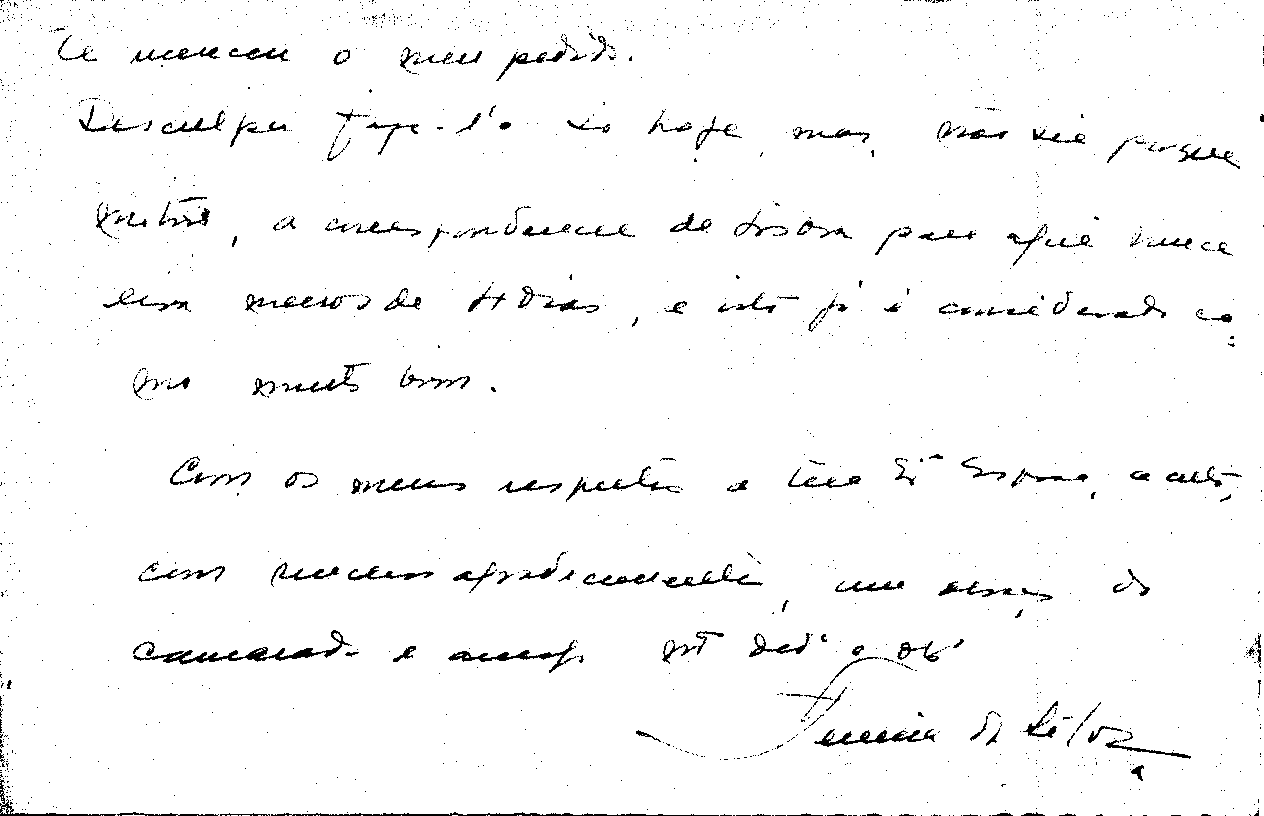 te merecen o meu pedido.
Desculpa faze-l'o só hoje, mas, não sei porque
motivo, a correspondencia de Lisboa para aqui nunca
leva menos de 4 dias, e isto já é considerado co-
mo muito bom.
Com os meus respeitos a tua Exª Esposa, aceita,
com os meus agradecimentos, um abraço do
camarada e amigo mtº dedº e obº
Ferreira da Silva